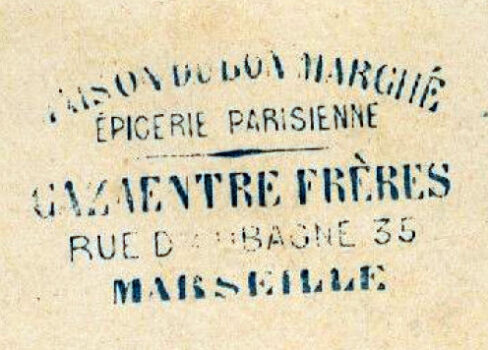 MAISON DU BON MARCHÉ
ÉPICERIE PARISIENNE
CAZAENTRE FRÈRES
RUE D'AUBAGNE 35
MARSEILLE